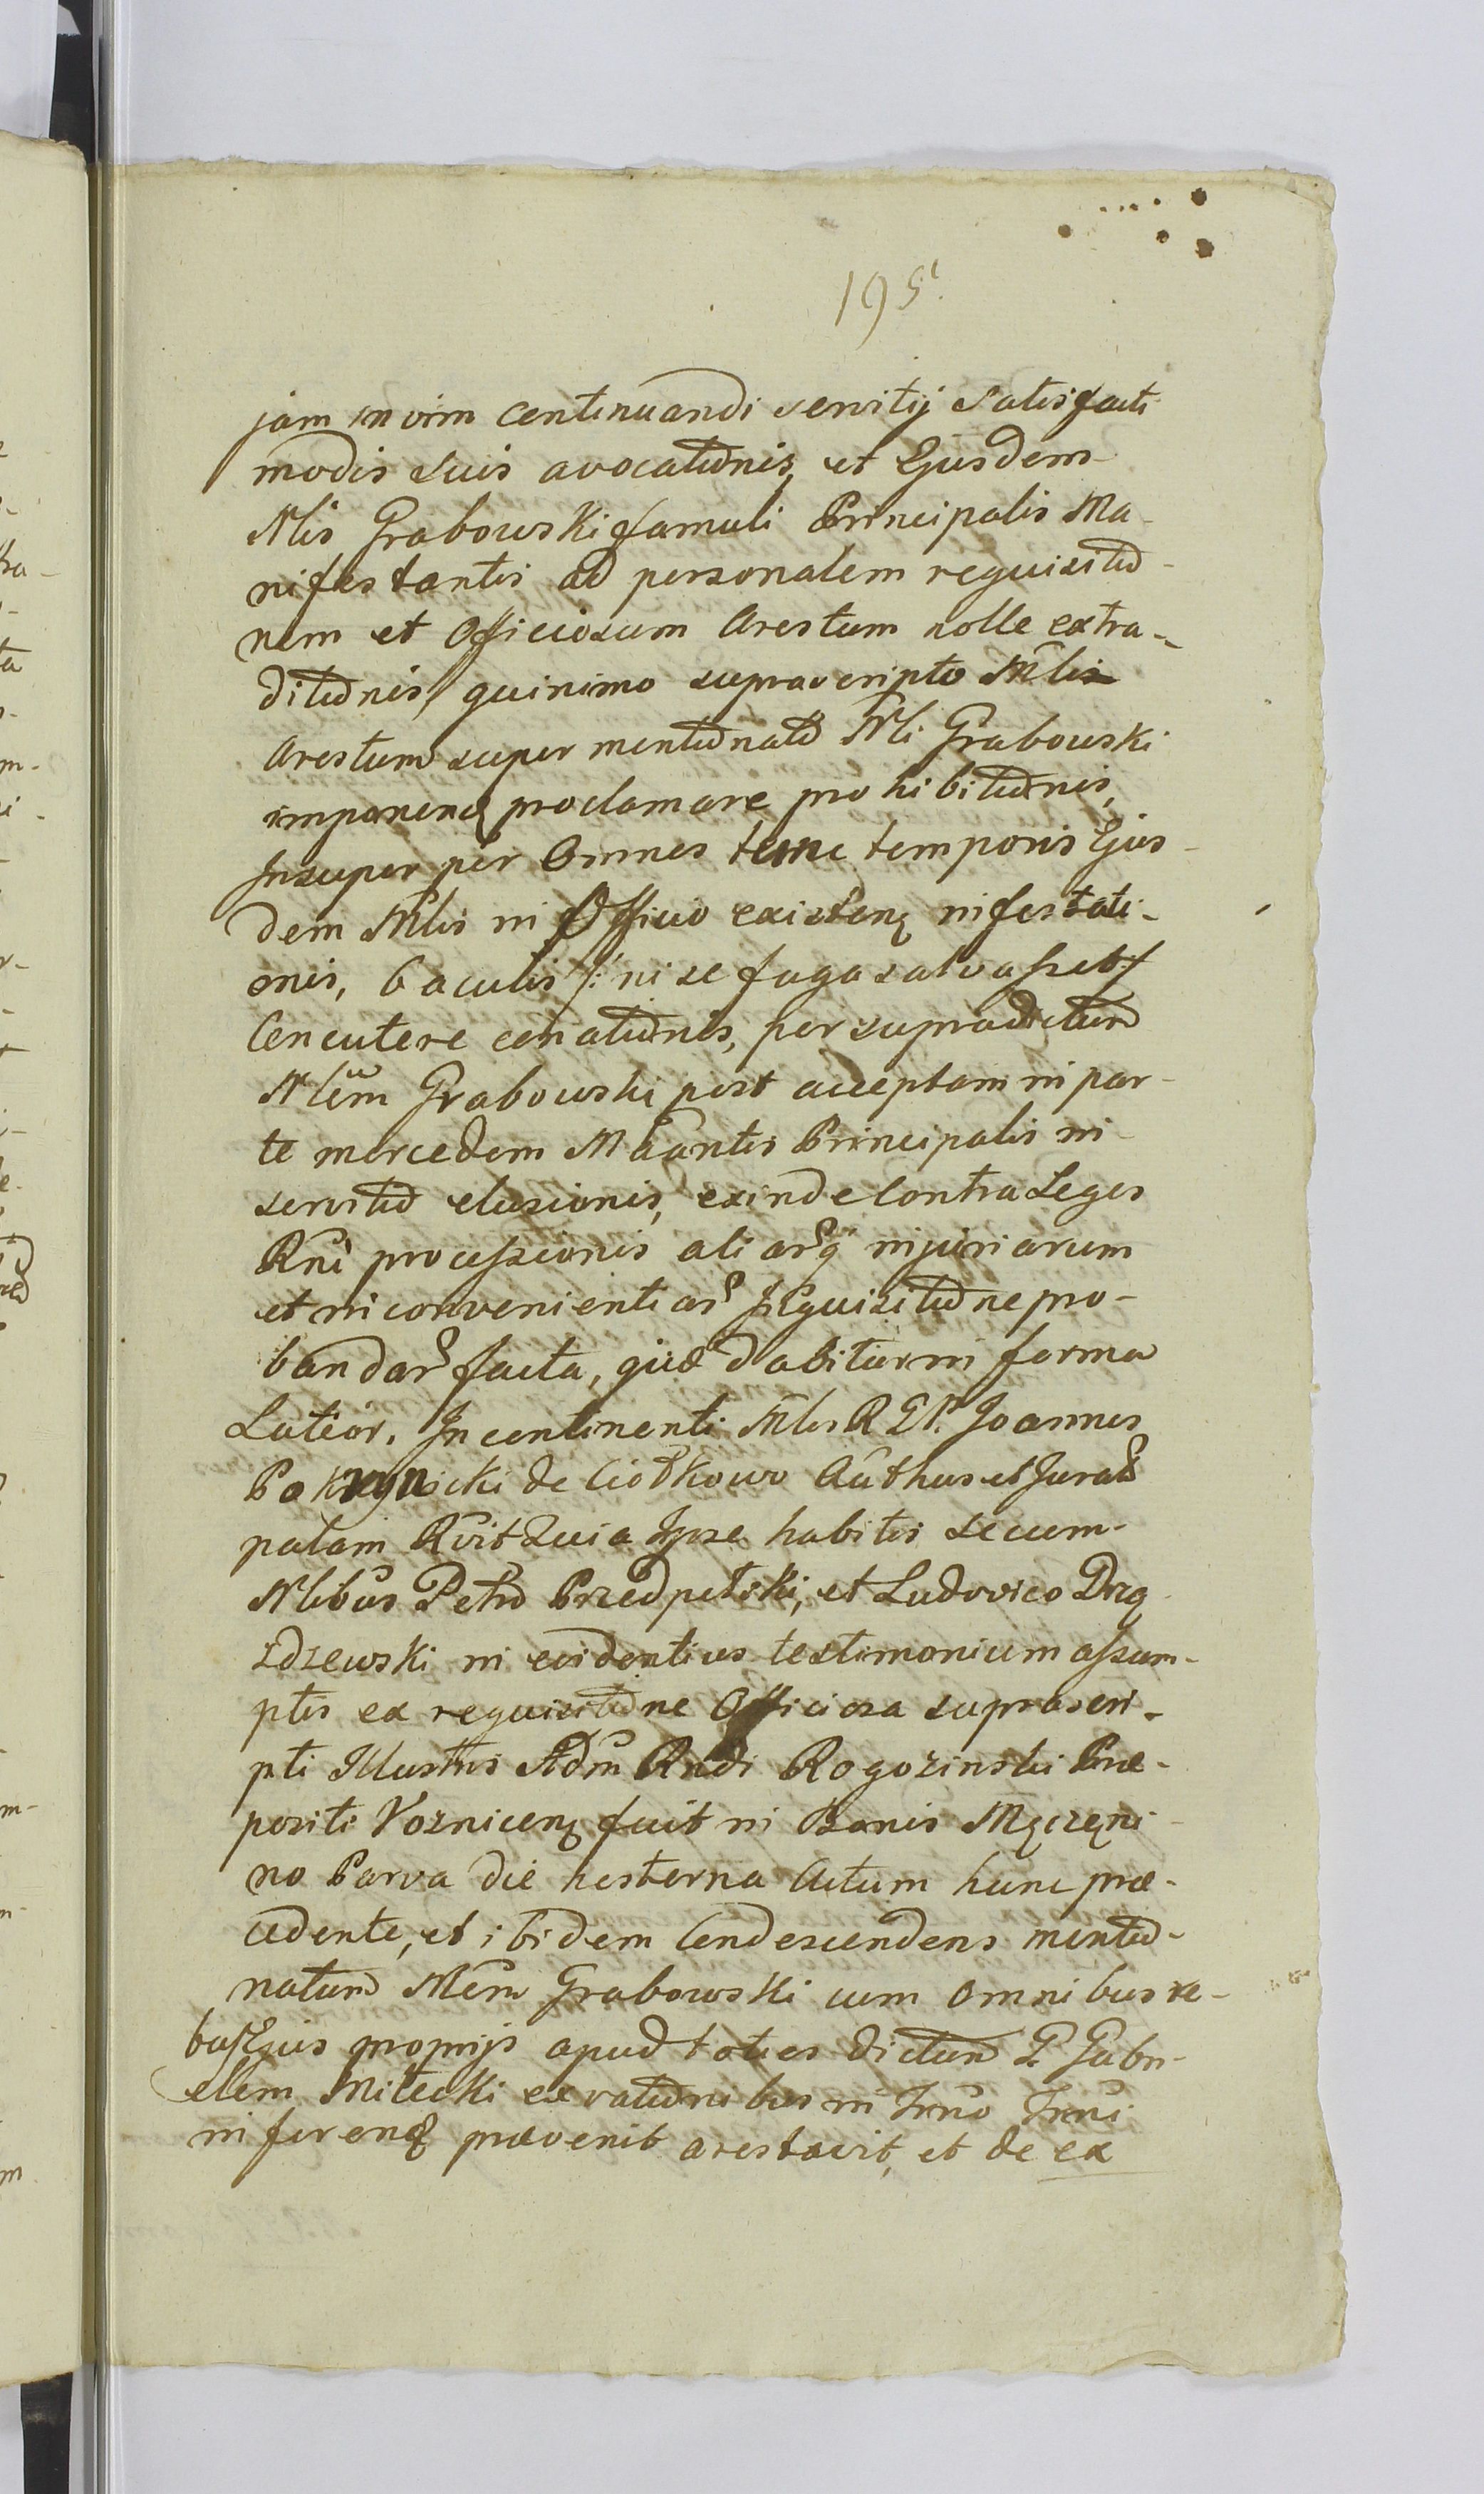 195
jam in vim continuandi servitij satisfacti
modis suis avocationis, et Ejusdem
Nlis Grabowski famuli Principalis Ma-
nifestantis ad personalem requisitio-
nem et Officiosum Arestum nolle extra-
ditionis, quinimo suprascripto Mlis
Arestum super mentionato Nli Grabowski
imponen proclamare prohibitionis,
Insuper per Omnes tunc temporis Ejus-
dem Mlis in Officio existen infestati-
onis, baculis /: ni se fuga salvasset :/
Concutere conationis, per supradictum
Nlem Grabowski post acceptam in par-
te mercedem Mantis Principalis in
servitio elusionis, exinde Contra Leges
Rni processionis aliarq injuriarum
et inconvenientiar Inquisitione pro-
bandar facta, quae dabitur in forma
Latior. In continenti Mlis R G N. Joannes
de Ciołkowo Authus et Jurat
palam Rvit Quia Ipse habitis secum
Nlibus Petro Przedpełski, et Ludovico Drą
żdzewski in evidentius testimonium assum-
ptis ex requisitione Officiosa suprascri-
pti Illustris Adm Rndi Rogoziński Prae-
positi Voznicen fuit in Bonis Męczęni-
no Parva die hesterna Actum hunc prae-
cedente, et ibidem Condescendens mentio-
natum Nlem Grabowski cum Omnibus re-
bus Ejus proprijs apud toties dictum G. Gabri-
elem Milecki ex rationibus in Trno Trni
inferen praevenit arestavit, et de ex